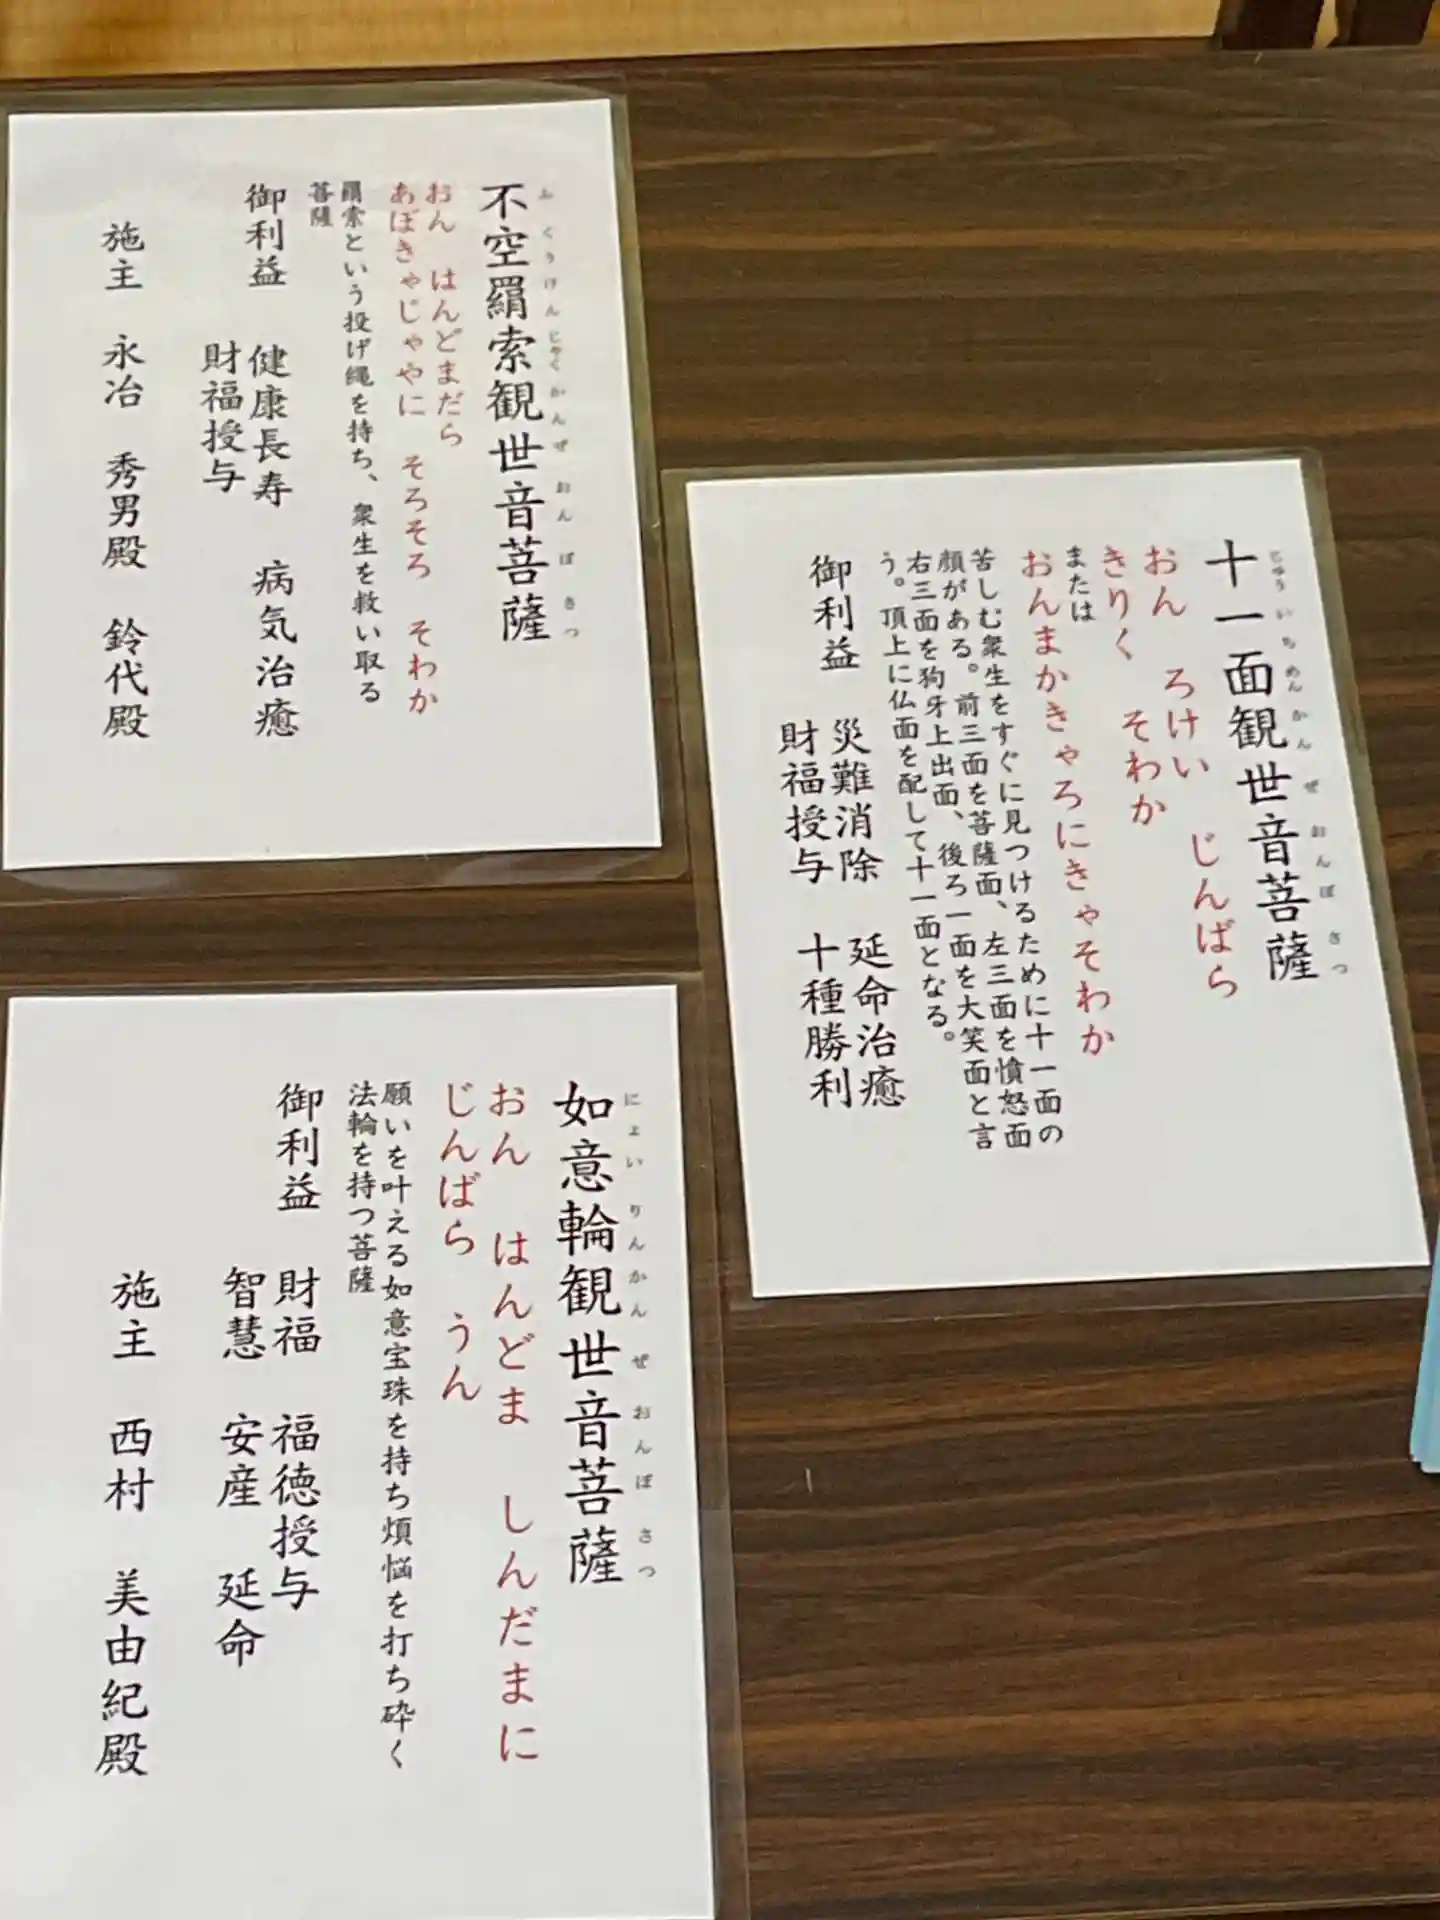 不空羂索観世音菩薩
ふくうけんじゃくかんぜおんぼさつ
おん はんどまだら
あぼきゃじゃやに そろそろ そわか
羂索という投げ縄を持ち、衆生を救い取る
菩薩
御利益 健康長寿 病気治癒
財福授与
施主 永冶 秀男殿 鈴代殿
十一面観世音菩薩
じゅういちめんかんぜおんぼさつ
おん ろけい じんばら
きりく そわか
または
おんまかきゃろにきゃそわか
苦しむ衆生をすぐに見つけるために十一面の
顔がある。前三面を菩薩面、左三面を憤怒面
右三面を狗牙上出面、後ろ一面を大笑面と言
う。頂上に仏面を配して十一面となる。
御利益 災難消除 延命治癒
財福授与 十種勝利
如意輪観世音菩薩
にょいりんかんぜおんぼさつ
おん はんどま しんだまに
じんばら うん
願いを叶える如意宝珠を持ち煩悩を打ち砕く
法輪を持つ菩薩
御利益 財福 福徳授与
智慧 安産 延命
施主 西村 美由紀殿